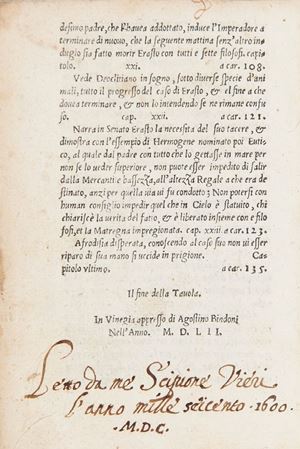 desimo padre, che l'hauea addottato, induce l'Imperadore a
terminare di nuouo, che la seguente mattina senz'altro in
dugio sia fatto morir Erasto con tutti e sette filosofi. capi
tolo. xxi. a car. 108.
Vede Deoclitiano in sogno, sotto diuerse specie d'ani
mali, tutto il progresso del caso di Erasto, & el fine a che
douea terminare, & non lo intendendo se ne rimane confu
so. cap. xxii. a car. 121.
Narra in Senato Erasto la necesita del suo tacere, &
dimostra con l'essempio di Hermogene nominato poi Euti
co, al quale dal padre con tutto che lo gettasse in mare per
non se lo ueder superiore, non puote esser impedito di salir
dalla Mercantil bassezza, all'altezza Regale a che era de
stinato, anzi per quella uia ui fu condotto: Non potersi con
human consiglio impedir quel che in Cielo è statuito, chi
chiarisce la uerita del fatto, & è liberato insieme con e filo
sofi, et la Matregna impregionata. cap. xxiii. a car. 123.
Afrodisia disperata, conoscendo al caso suo non ui esser
riparo di sua mano si uccide in prigione. Ca-
pitolo vltimo. a car. 135.
Il fine della Tauola.
In Vinegia appresso di Agostino Bindoni
Nell'Anno. M. D. LII.
Letto da me Scipione Vieri
l'anno mille seicento · 1600 ·
· M.D.C.